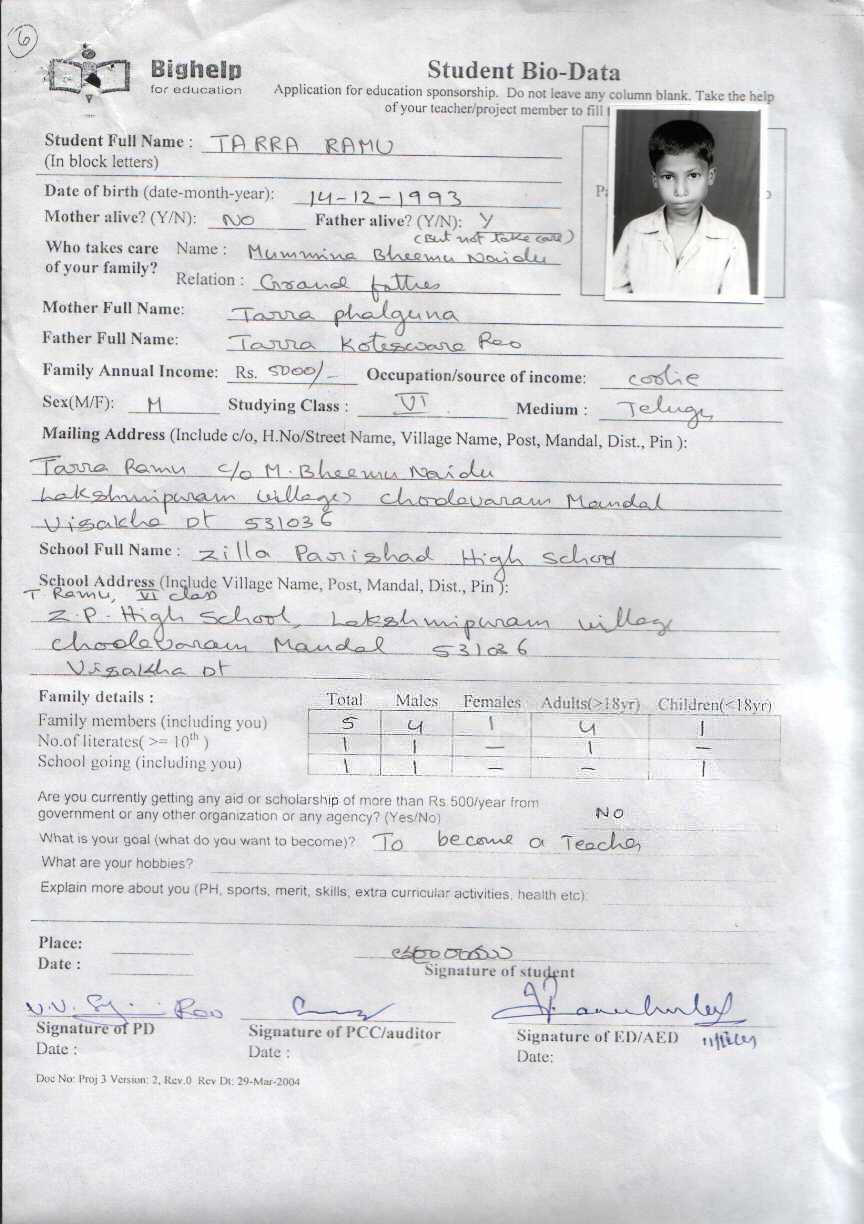 6
Bighelp
for education
Student Bio-Data
Application for education sponsorship. Do not leave any column blank. Take the help
of your teacher/project member to fill
Student Full Name : TARRA RAMU
(In block letters)
Date of birth (date-month-year): 14-12-1993
Mother alive? (Y/N): NO Father alive? (Y/N): Y
(But not take care)
Who takes care of your family? Name : Mummina Bheemu Naidu
Relation : Grand father
Mother Full Name: Tarra phalguna
Father Full Name: Tarra Koteswara Rao
Family Annual Income: Rs. 5000/- Occupation/source of income: coolie
Sex(M/F): M Studying Class : VI Medium : Telugu
Mailing Address (Include c/o, H.No/Street Name, Village Name, Post, Mandal, Dist., Pin ):
Tarra Ramu c/o M. Bheemu Naidu
Lakshmipuram village, Choodavaram Mandal
Visakha Dt 531036
School Full Name : Zilla Parishad High School
School Address (Include Village Name, Post, Mandal, Dist., Pin ):
T. Ramu, VI class
Z.P. High School, Lakshmipuram village
Choodavaram Mandal 531036
Visakha Dt
Family details : Total Males Females Adults(>18yr) Children(<18yr)
Family members (including you) 5 4 1 4 1
No.of literates( >= 10th ) 1 1 — 1 —
School going (including you) 1 1 — — 1
Are you currently getting any aid or scholarship of more than Rs 500/year from
government or any other organization or any agency? (Yes/No) NO
What is your goal (what do you want to become)? To become a Teacher
What are your hobbies?
Explain more about you (PH, sports, merit, skills, extra curricular activities, health etc):
Place:
Date :
Signature of student
Rao
Signature of PD
Signature of PCC/auditor
Signature of ED/AED
Date :
Date :
Date:
Doc No: Proj 3 Version: 2, Rev.0 Rev Dt: 29-Mar-2004